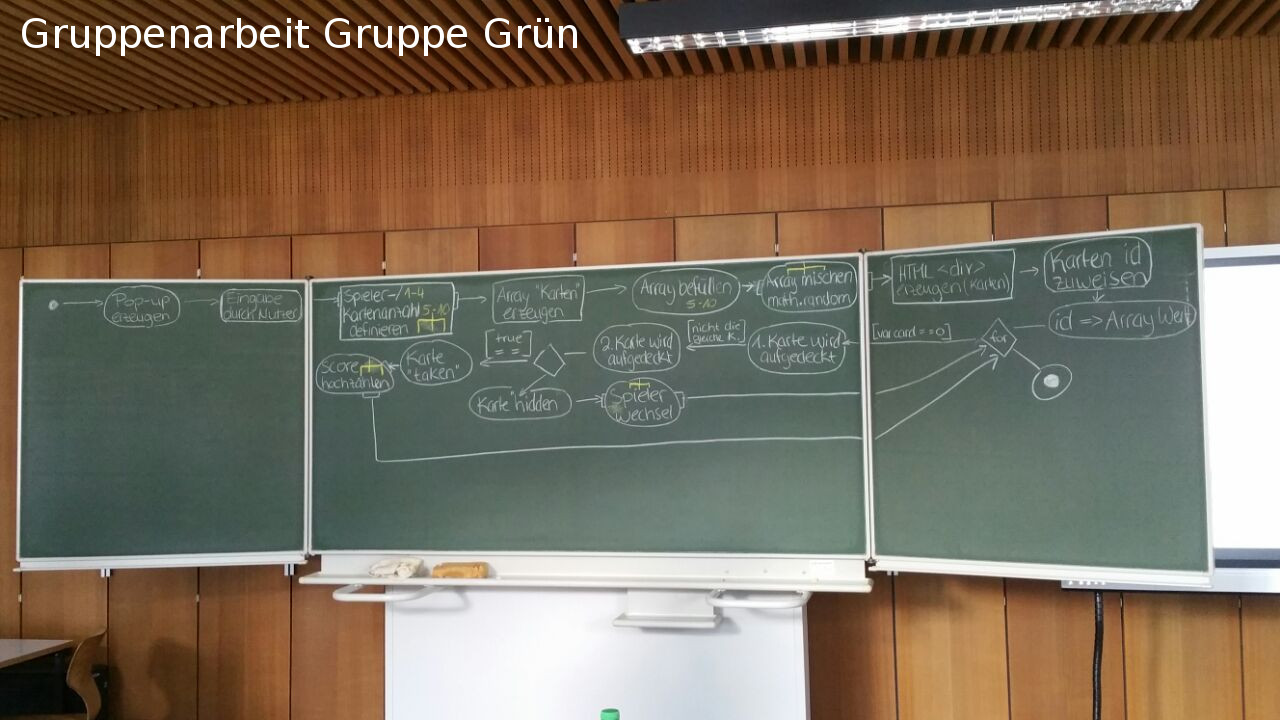 Gruppenarbeit Gruppe Grün
Pop-up
erzeugen
Eingabe
durch Nutzer
Spieler-/1-4
Kartenanzahl 5-10
definieren
Array "Karten"
erzeugen
Array befüllen
5-10
Array mischen
math.random
HTML <div>
erzeugen (Karten)
Karten id
zuweisen
id => Array Wert
for
[var card ==0]
1. Karte wird
aufgedeckt
[nicht die
gleiche K.]
2. Karte wird
aufgedeckt
[true
==]
Karte
"taken"
Score
hochzählen
Karte "hidden
Spieler
Wechsel